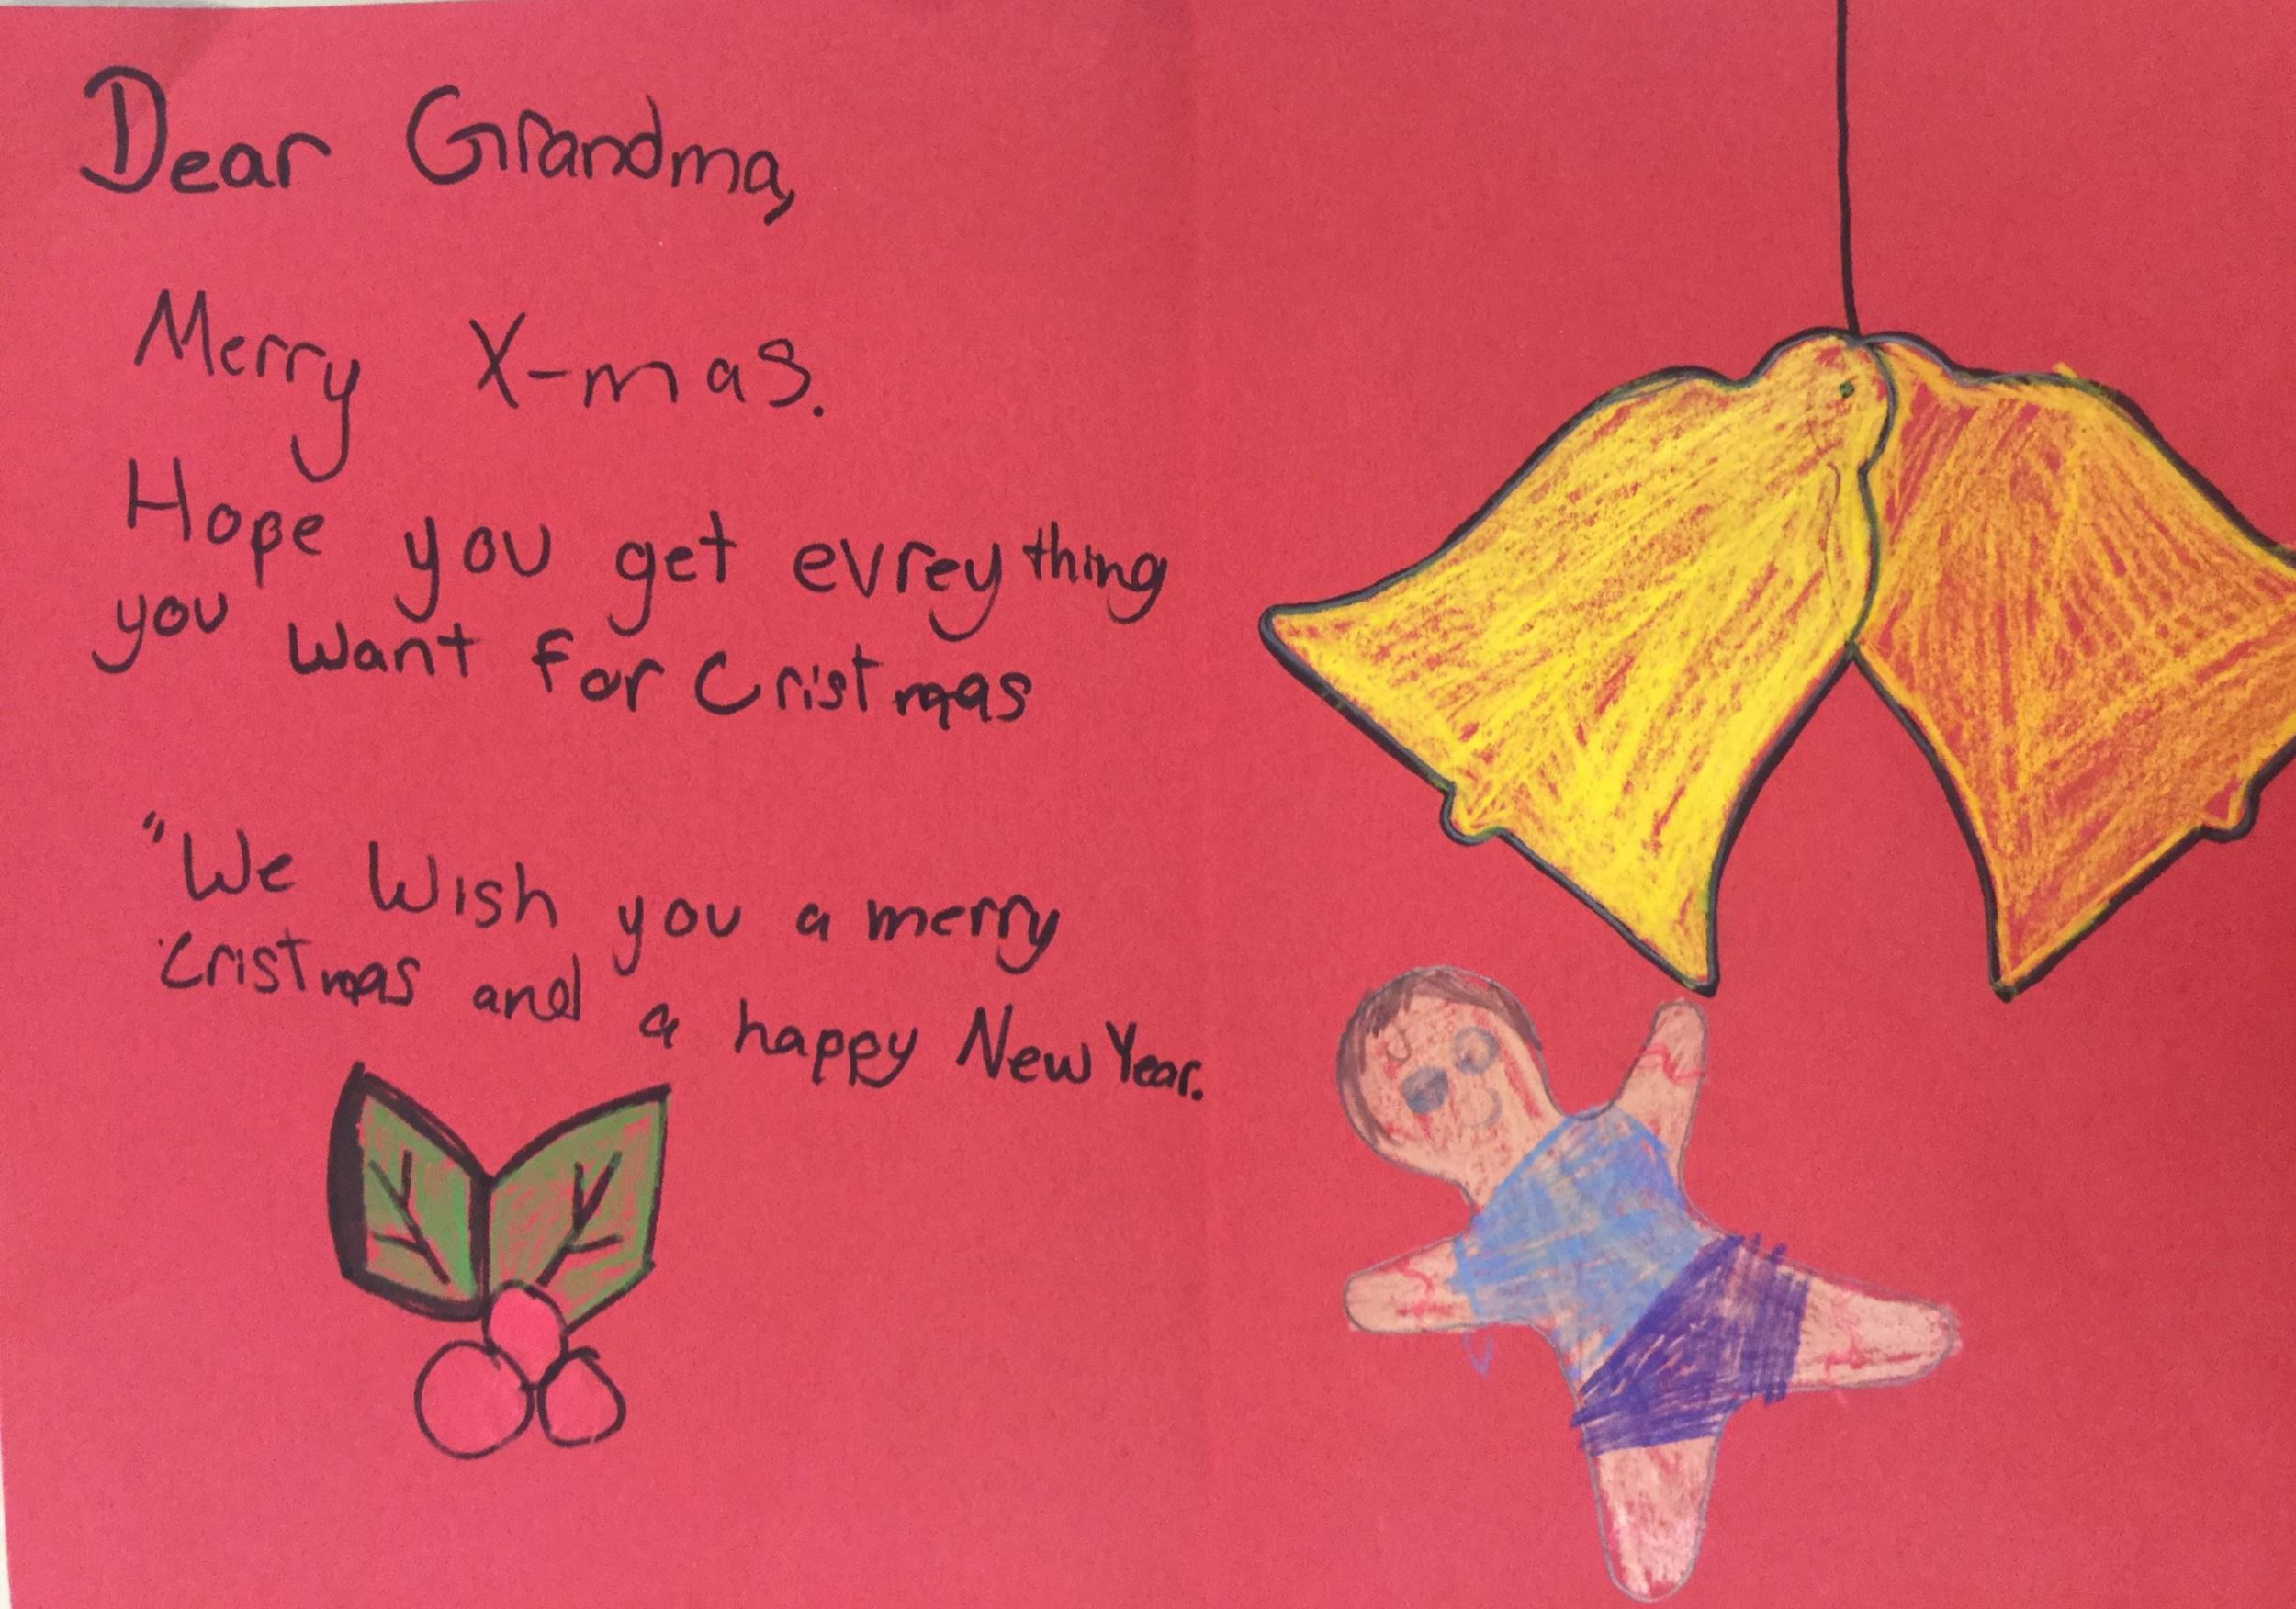 Dear Grandma,
Merry X-mas.
Hope you get evreything
you want for Cristmas
"We Wish you a merry
Cristmas and a happy New Year.